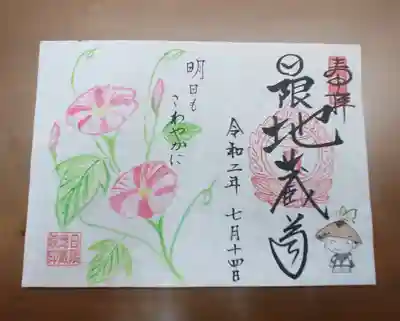 奉拝
日限地蔵尊
令和二年 七月十四日
明日も
さわやかに